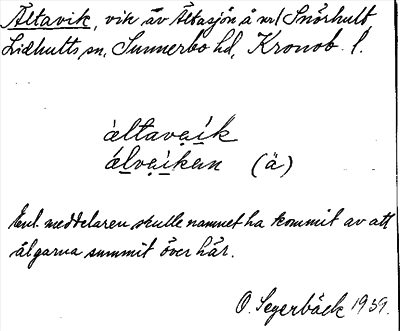 Ältavik, vik av Ältasjön å nrl Snörhult
Lidhults sn, Sunnerbo hd, Kronob. l.
àltavạík
álvạíkan (ä)
Enl. meddelaren skulle namnet ha kommit av att
älgarna summit över här.
O. Segerbäck 1939.